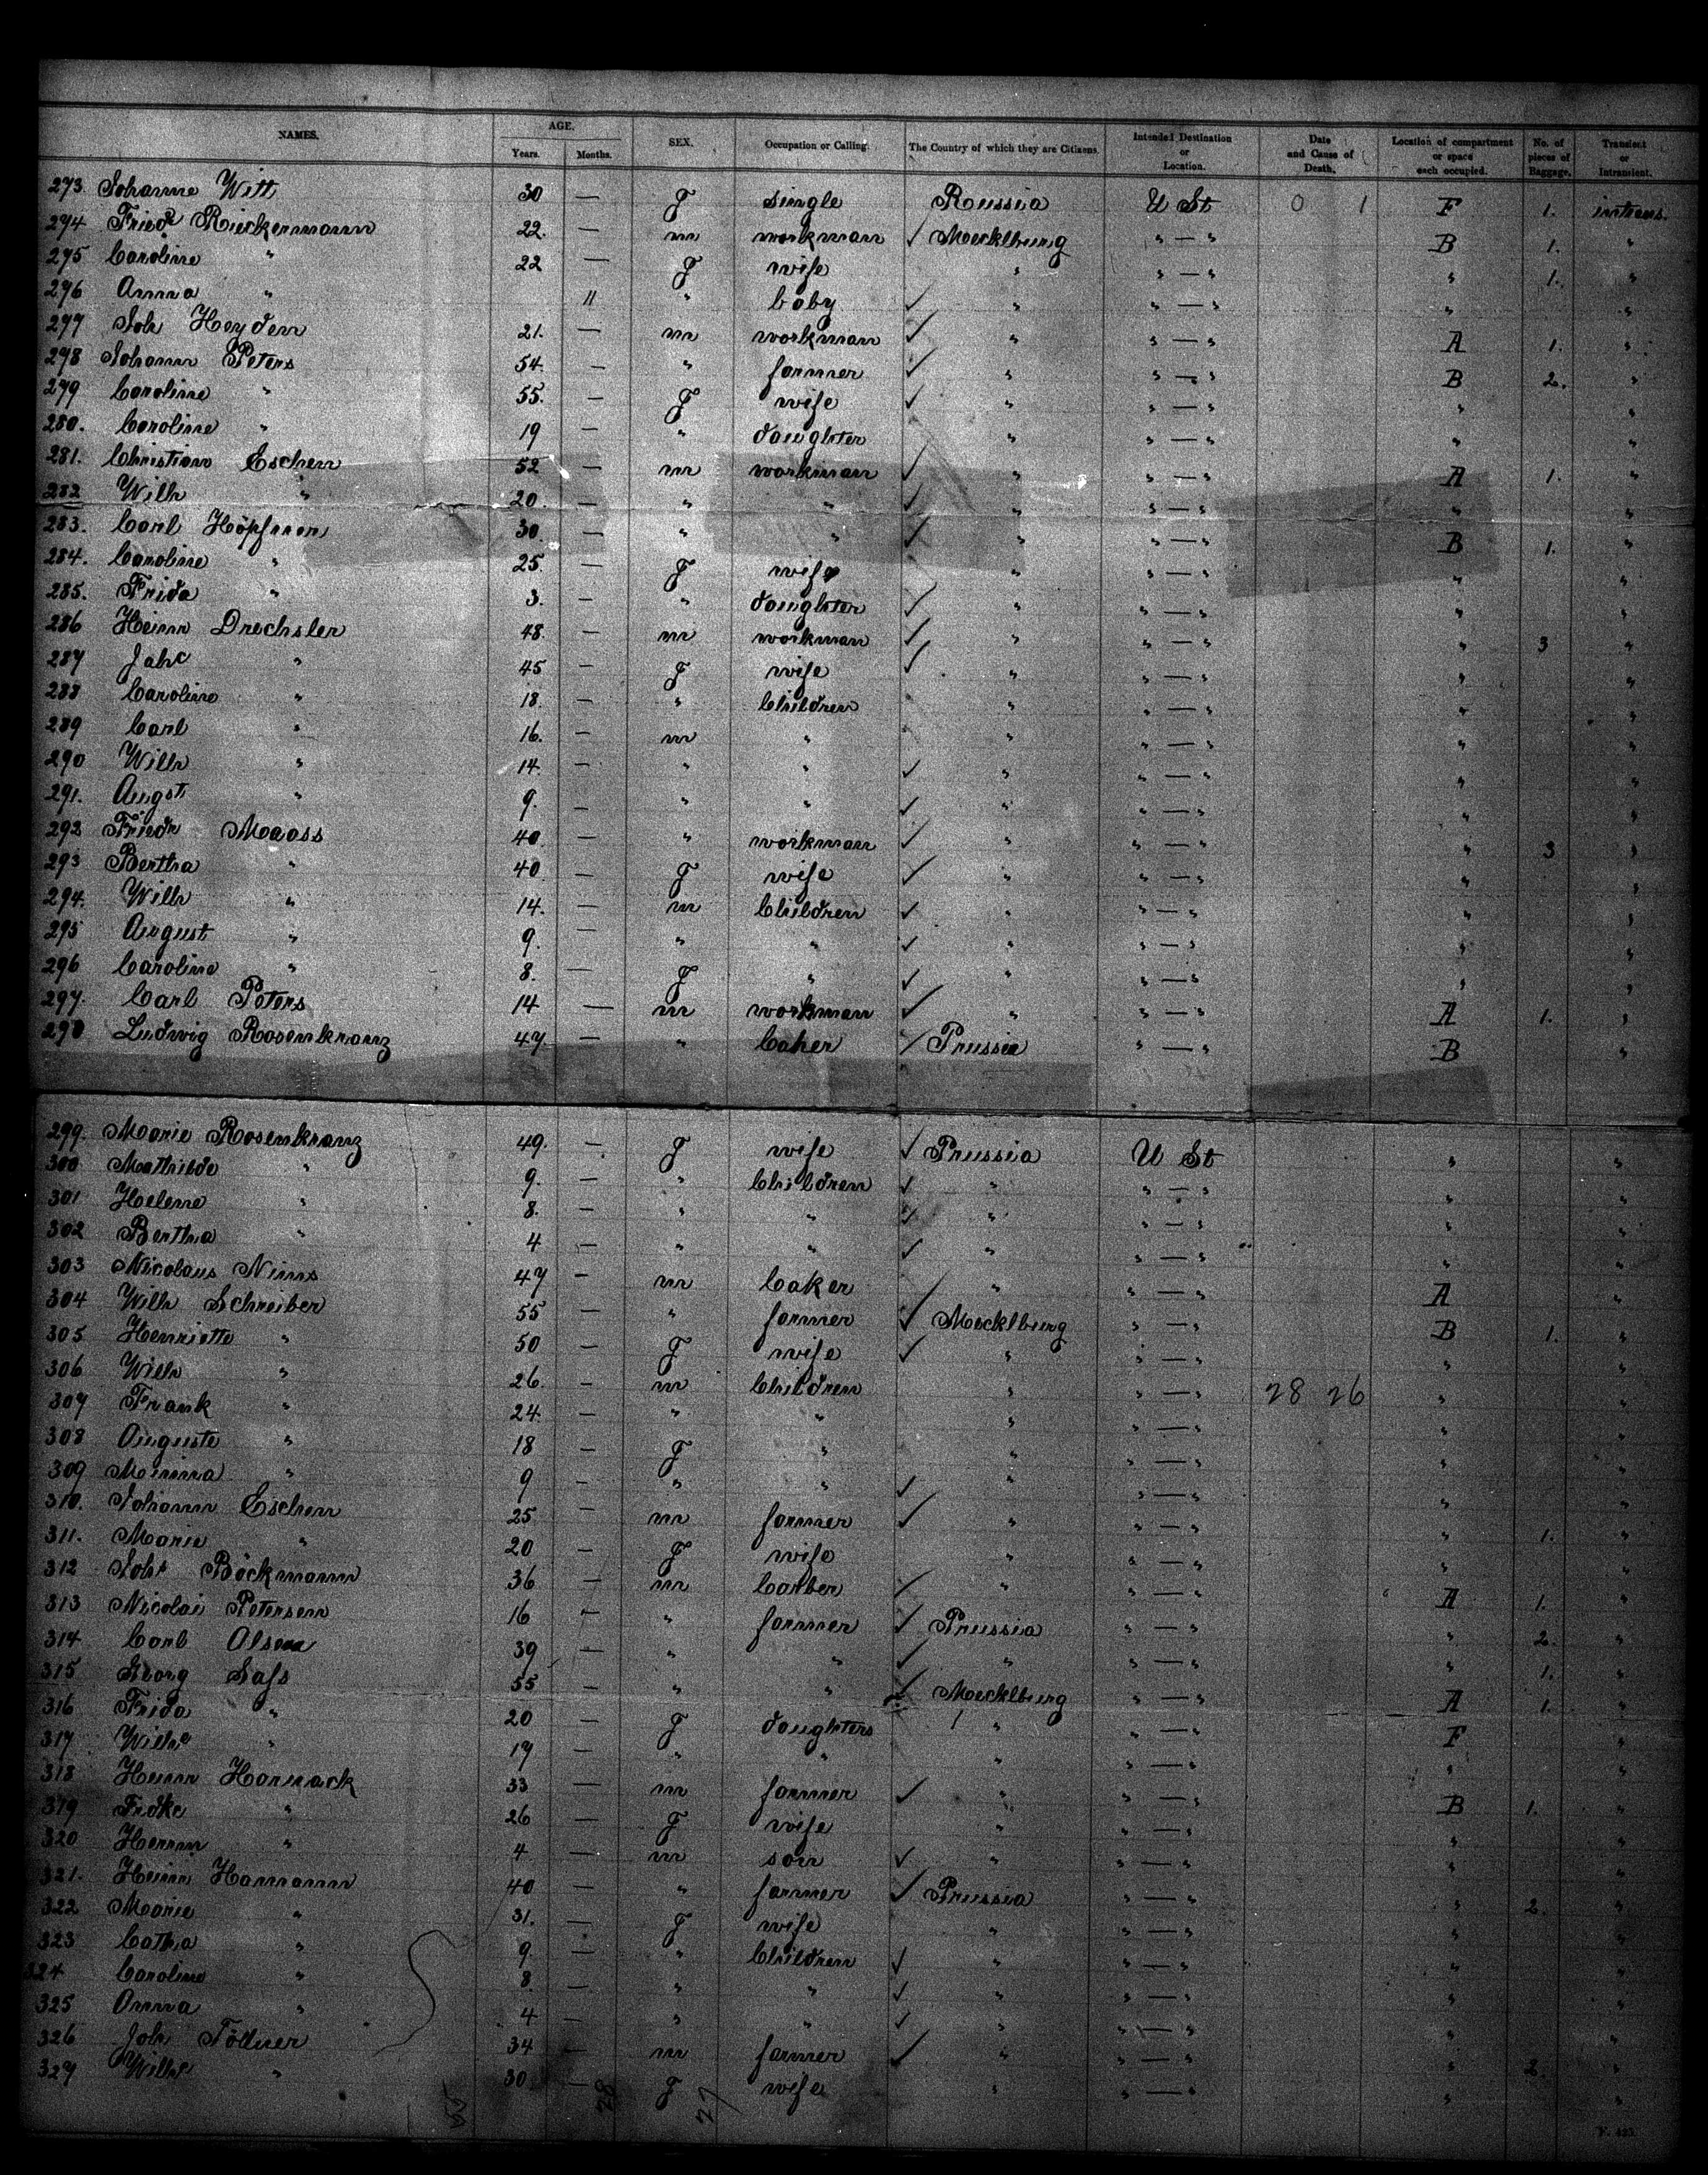 NAMES. AGE. Years. Months. SEX. Occupation or Calling. The Country of which they are Citizens. Intended Destination or Location. Date and Cause of Death. Location of compartment or space each occupied. No. of pieces of Baggage. Transient or Intransient.
273. Johanne Witt 30 — F single Russia U St 0 1 F 1. intrans.
294 Friedr Rieckermann 22. — m workman ✓ Mecklburg " — " B 1. "
295 Caroline " 22 — F wife " " — " " 1. "
296 Anna " 11 " baby ✓ " " — " " "
277 Joh Heyden 21. — m workman ✓ " " — " A 1. "
278 Johann Peters 54. — " farmer ✓ " " — " B 2. "
279 Caroline " 55. — F wife ✓ " " — " " "
280. Caroline " 19 — " daughter " " — " " "
281. Christian Eschen 52 — m workman ✓ " " — " A 1. "
282 Wilh " 20. — " " ✓ " " — " " "
283. Carl Höpfner 30. — " " ✓ " " — " B 1. "
284. Caroline " 25. — F wife " " — " " "
285. Frida " 3. — " daughter ✓ " " — " " "
286 Heinr Drechsler 48. — m workman ✓ " " — " " 3 "
287 Jahc " 45 — F wife ✓ " " — " " "
288 Caroline " 18. — " Children " " — " " "
289 Carl " 16. — m " " " — " " "
290 Wilh " 14. — " " ✓ " " — " " "
291. Augst " 9. — " " ✓ " " — " " "
292 Friedr Maass 40. — " workman ✓ " " — " " 3 "
293 Bertha " 40. — F wife ✓ " " — " " "
294. Wilh " 14. — m Children ✓ " " — " " "
295 August " 9. — " " ✓ " " — " " "
296 Caroline " 8. — F " ✓ " " — " " "
297. Carl Peters 14 — m workman ✓ " " — " A 1. "
298 Ludwig Rosenkranz 47. — " baker ✓ Prussia " — " B "
299. Marie Rosenkranz 49. — F wife ✓ Prussia U St " "
300 Mathilde " 9. — " Children ✓ " " — " " "
301 Helene " 8. — " " ✓ " " — " " "
302 Bertha " 4 — " " ✓ " " — " " "
303 Nicolaus Nims 47 — m baker " " — " A "
304 Wilh Schreiber 55 — " farmer ✓ Mecklburg " — " B 1. "
305 Henriette " 50 — F wife ✓ " " — " " "
306 Wilh " 26. — m Children " " — " 28 26 " "
307 Frank " 24. — " " " " — " " "
308 Auguste " 18 — F " " " — " " "
309 Minna " 9 — " " ✓ " " — " " "
310. Johann Eschen 25 — m farmer ✓ " " — " " 1. "
311. Marie " 20 — F wife " " — " " "
312 Joh Böckmann 36 — m barber ✓ " " — " A 1. "
313 Nicolai Petersen 16 — " farmer ✓ Prussia " — " " 2. "
314 Carl Olsen 39 — " " ✓ " " — " " 1. "
315 Georg Saſs 55 — " " ✓ Mecklburg " — " A 1. "
316 Frida " 20 — F daughters " " — " F "
317 Wilhe " 19 — " " " " — " " "
318 Heinr Harnack 33 — m farmer ✓ " " — " B 1. "
319 Fridke " 26 — F wife " " — " " "
320 Herrm " 4. — m son ✓ " " — " " "
321. Heinr Hamann 40 — " farmer ✓ Prussia " — " " 2. "
322 Marie " 31. — F wife " " — " " "
323 Catha " 9. — " Children ✓ " " — " " "
324 Caroline " 8 — " " ✓ " " — " " "
325 Anna " 4 — " " ✓ " " — " " "
326 Joh Töllner 34 — m farmer ✓ " " — " " 2. "
327 Wilhe " 30. — F wife " " — " " "
55 28 27